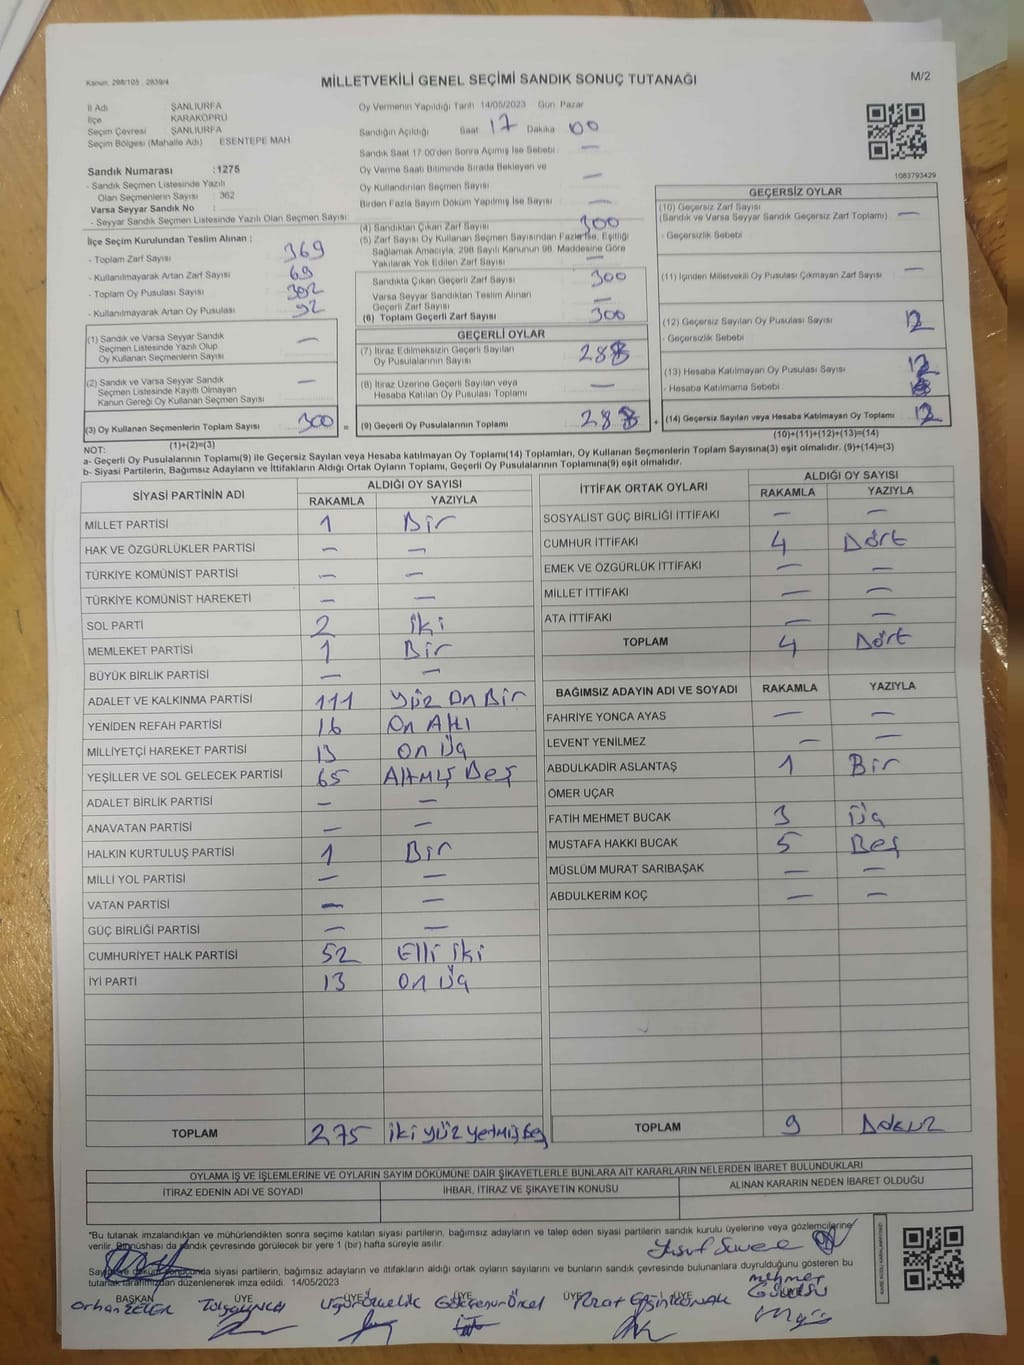 Kanun: 298/105 , 2839/4
MİLLETVEKİLİ GENEL SEÇİMİ SANDIK SONUÇ TUTANAĞI
M/2
İl Adı ŞANLIURFA
İlçe KARAKÖPRÜ
Seçim Çevresi ŞANLIURFA
Seçim Bölgesi (Mahalle Adı) ESENTEPE MAH
Sandık Numarası :1275
- Sandık Seçmen Listesinde Yazılı
Olan Seçmenlerin Sayısı 362
Varsa Seyyar Sandık No :
- Seyyar Sandık Seçmen Listesinde Yazılı Olan Seçmen Sayısı:
İlçe Seçim Kurulundan Teslim Alınan :
- Toplam Zarf Sayısı 369
- Kullanılmayarak Artan Zarf Sayısı 69
- Toplam Oy Pusulası Sayısı
- Kullanılmayarak Artan Oy Pusulası 92
(1) Sandık ve Varsa Seyyar Sandık
Seçmen Listesinde Yazılı Olup
Oy Kullanan Seçmenlerin Sayısı —
(2) Sandık ve Varsa Seyyar Sandık
Seçmen Listesinde Kayıtlı Olmayan
Kanun Gereği Oy Kullanan Seçmen Sayısı —
(3) Oy Kullanan Seçmenlerin Toplam Sayısı 300 =
(1)+(2)=(3)
Oy Vermenin Yapıldığı Tarih 14/05/2023 Gün Pazar
Sandığın Açıldığı Saat 17 Dakika 00
Sandık Saat 17:00'den Sonra Açılmış İse Sebebi : —
Oy Verme Saati Bitiminde Sırada Bekleyen ve
Oy Kullandırılan Seçmen Sayısı —
Birden Fazla Sayım Döküm Yapılmış İse Sayısı —
(4) Sandıktan Çıkan Zarf Sayısı 300
(5) Zarf Sayısı Oy Kullanan Seçmen Sayısından Fazla İse, Eşitliği
Sağlamak Amacıyla, 298 Sayılı Kanunun 98. Maddesine Göre
Yakılarak Yok Edilen Zarf Sayısı —
Sandıkta Çıkan Geçerli Zarf Sayısı 300
Varsa Seyyar Sandıktan Teslim Alınan
Geçerli Zarf Sayısı —
(6) Toplam Geçerli Zarf Sayısı 300
GEÇERLİ OYLAR
(7) İtiraz Edilmeksizin Geçerli Sayılan
Oy Pusulalarının Sayısı 288
(8) İtiraz Üzerine Geçerli Sayılan veya
Hesaba Katılan Oy Pusulası Toplamı —
(9) Geçerli Oy Pusulalarının Toplamı 288 +
1083793429
GEÇERSİZ OYLAR
(10) Geçersiz Zarf Sayısı
(Sandık ve Varsa Seyyar Sandık Geçersiz Zarf Toplamı) —
- Geçersizlik Sebebi
(11) İçinden Milletvekili Oy Pusulası Çıkmayan Zarf Sayısı —
(12) Geçersiz Sayılan Oy Pusulası Sayısı 12
- Geçersizlik Sebebi
(13) Hesaba Katılmayan Oy Pusulası Sayısı 12
- Hesaba Katılmama Sebebi :
(14) Geçersiz Sayılan veya Hesaba Katılmayan Oy Toplamı 12
(10)+(11)+(12)+(13)=(14)
NOT:
a- Geçerli Oy Pusulalarının Toplamı(9) ile Geçersiz Sayılan veya Hesaba katılmayan Oy Toplamı(14) Toplamları, Oy Kullanan Seçmenlerin Toplam Sayısına(3) eşit olmalıdır. (9)+(14)=(3)
b- Siyasi Partilerin, Bağımsız Adayların ve İttifakların Aldığı Ortak Oyların Toplamı, Geçerli Oy Pusulalarının Toplamına(9) eşit olmalıdır.
SİYASİ PARTİNİN ADI ALDIĞI OY SAYISI
RAKAMLA YAZIYLA
MİLLET PARTİSİ 1 Bir
HAK VE ÖZGÜRLÜKLER PARTİSİ — —
TÜRKİYE KOMÜNİST PARTİSİ — —
TÜRKİYE KOMÜNİST HAREKETİ — —
SOL PARTİ 2 iki
MEMLEKET PARTİSİ 1 Bir
BÜYÜK BİRLİK PARTİSİ — —
ADALET VE KALKINMA PARTİSİ 111 Yüz On Bir
YENİDEN REFAH PARTİSİ 16 On Altı
MİLLİYETÇİ HAREKET PARTİSİ 13 On Üç
YEŞİLLER VE SOL GELECEK PARTİSİ 65 Altmış Beş
ADALET BİRLİK PARTİSİ — —
ANAVATAN PARTİSİ — —
HALKIN KURTULUŞ PARTİSİ 1 Bir
MİLLİ YOL PARTİSİ — —
VATAN PARTİSİ — —
GÜÇ BİRLİĞİ PARTİSİ — —
CUMHURİYET HALK PARTİSİ 52 Elli iki
İYİ PARTİ 13 On Üç
TOPLAM 275 iki yüz yetmiş beş
İTTİFAK ORTAK OYLARI ALDIĞI OY SAYISI
RAKAMLA YAZIYLA
SOSYALİST GÜÇ BİRLİĞİ İTTİFAKI — —
CUMHUR İTTİFAKI 4 Dört
EMEK VE ÖZGÜRLÜK İTTİFAKI — —
MİLLET İTTİFAKI — —
ATA İTTİFAKI — —
TOPLAM 4 Dört
BAĞIMSIZ ADAYIN ADI VE SOYADI RAKAMLA YAZIYLA
FAHRİYE YONCA AYAS — —
LEVENT YENİLMEZ — —
ABDULKADİR ASLANTAŞ 1 Bir
ÖMER UÇAR
FATİH MEHMET BUCAK 3 Üç
MUSTAFA HAKKI BUCAK 5 Beş
MÜSLÜM MURAT SARIBAŞAK — —
ABDULKERİM KOÇ — —
TOPLAM 9 Dokuz
OYLAMA İŞ VE İŞLEMLERİNE VE OYLARIN SAYIM DÖKÜMÜNE DAİR ŞİKAYETLERLE BUNLARA AİT KARARLARIN NELERDEN İBARET BULUNDUKLARI
İTİRAZ EDENİN ADI VE SOYADI İHBAR, İTİRAZ VE ŞİKAYETİN KONUSU ALINAN KARARIN NEDEN İBARET OLDUĞU
*Bu tutanak imzalandıktan ve mühürlendikten sonra seçime katılan siyasi partilerin, bağımsız adayların ve talep eden siyasi partilerin sandık kurulu üyelerine veya gözlemcilerine
verilir. Bir nüshası da sandık çevresinde görülecek bir yere 1 (bir) hafta süreyle asılır.
Yusuf
Sayım ve döküm sonucunda siyasi partilerin, bağımsız adayların ve ittifakların aldığı ortak oyların sayılarını ve bunların sandık çevresinde bulunanlara duyrulduğunu gösteren bu
tutanak tarafımızdan düzenlenerek imza edildi. 14/05/2023
BAŞKAN ÜYE ÜYE ÜYE ÜYE
Orhan Tolga Uğur Örnelik Gökçenur Özel Mehmet